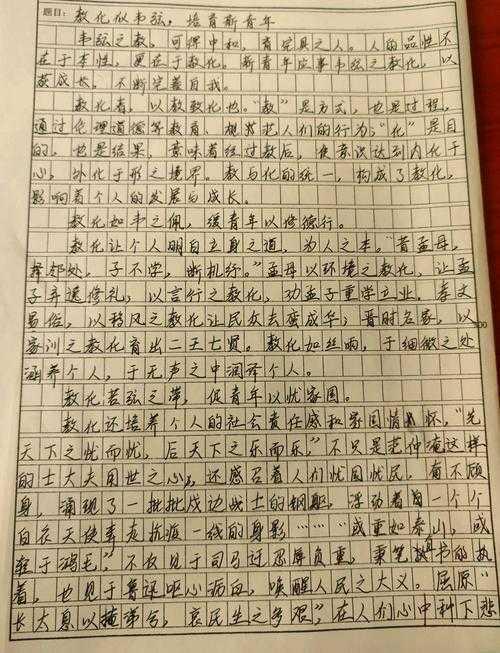 题目：教化似韦弦，培育新青年
韦弦之教，可得中和，育完具之人。人的品性不
在于本性，更在于教化。新青年应事韦弦之教化，以
获成长，不断完善自我。
教化者，以教致化也。“教”是方式，也是过程，
通过伦理道德等教育、规范人们的行为；“化”是目
的，也是结果，意味着经过教后，使意识达到内化于
心，外化于形之境界。教与化的统一，构成了教化，
影响着个人的发展与成长。
教化如韦之佩，缓青年以修德行。
教化让个人明白立身之道，为人之本。“昔孟母，
择邻处，子不学，断机杼。”孟母以环境之教化，让孟
子弃逸修礼；以言行之教化，劝孟子重学立业。文
易俗，以移风之教化让民众去蛮成华；晋时名家，以
家训之教化育出二王七贤。教化如丝响，于细微之处
涵养个人，于无声之中润泽个人。
教化若弦之带，促青年以忧家国。
教化还培养个人的社会责任感和家国情怀，“先
天下之忧而忧，后天下之乐而乐，”不只是范仲淹这样
的士大夫用世之心，还感召着人们忧国忧民，奋不顾
身，涌现了一批批戍边战士的钢躯，浮动着一个个
白衣天使奔走抗疫一线的身影……“或重如泰山，或
轻于鸿毛”，不仅见于司马迁忍辱负重，秉笔直书的执
着，也见于鲁迅呕心沥血，唤醒人民之大义。屈原“
长太息以掩涕兮，哀民生之多艰”，在人们心中种下悲
800